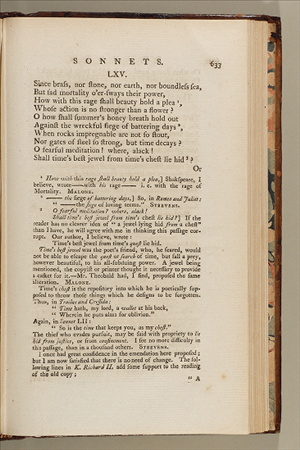 SONNETS. 633
LXV.
Since braſs, nor ſtone, nor earth, nor boundleſs ſea,
But ſad mortality o'er-ſways their power,
How with this rage ſhall beauty hold a plea ¹,
Whoſe action is no ſtronger than a flower?
O how ſhall ſummer's honey breath hold out
Againſt the wreckful ſiege of battering days ²,
When rocks impregnable are not ſo ſtout,
Nor gates of ſteel ſo ſtrong, but time decays?
O fearful meditation! where, alack!
Shall time's beſt jewel from time's cheſt lie hid ³?
Or
¹ How with this rage ſhall beauty hold a plea,] Shakſpeare, I
believe, wrote—with his rage— i. e. with the rage of
Mortality. MALONE.
² — the ſiege of battering days,] So, in Romeo and Juliet:
" — the ſiege of loving terms." STEEVENS.
³ O fearful meditation! where, alack!
Shall time's beſt jewel from time's cheſt lie hid?] If the
reader has no clearer idea of " a jewel lying hid from a cheſt"
than I have, he will agree with me in thinking this paſſage cor-
rupt. Our author, I believe, wrote:
Time's beſt jewel from time's queſt lie hid.
Time's beſt jewel was the poet's friend, who, he feared, would
not be able to eſcape the queſt or ſearch of time, but fall a prey,
however beautiful, to his all-ſubduing power. A jewel being
mentioned, the copyiſt or printer thought it neceſſary to provide
a caſket for it.—Mr. Theobald had, I find, propoſed the ſame
alteration. MALONE.
Time's cheſt is the repoſitory into which he is poetically ſup-
poſed to throw thoſe things which he deſigns to be forgotten.
Thus, in Troilus and Creſſida:
" Time hath, my lord, a wallet at his back,
" Wherein he puts alms for oblivion."
Again, in ſonnet LII:
" So is the time that keeps you, as my cheſt."
The thief who evades purſuit, may be ſaid with propriety to lie
hid from juſtice, or from confinement. I ſee no more difficulty in
this paſſage, than in a thouſand others. STEEVENS.
I once had great confidence in the emendation here propoſed;
but I am now ſatisfied that there is no need of change. The fol-
lowing lines in K. Richard II. add ſome ſupport to the reading
of the old copy;
" A